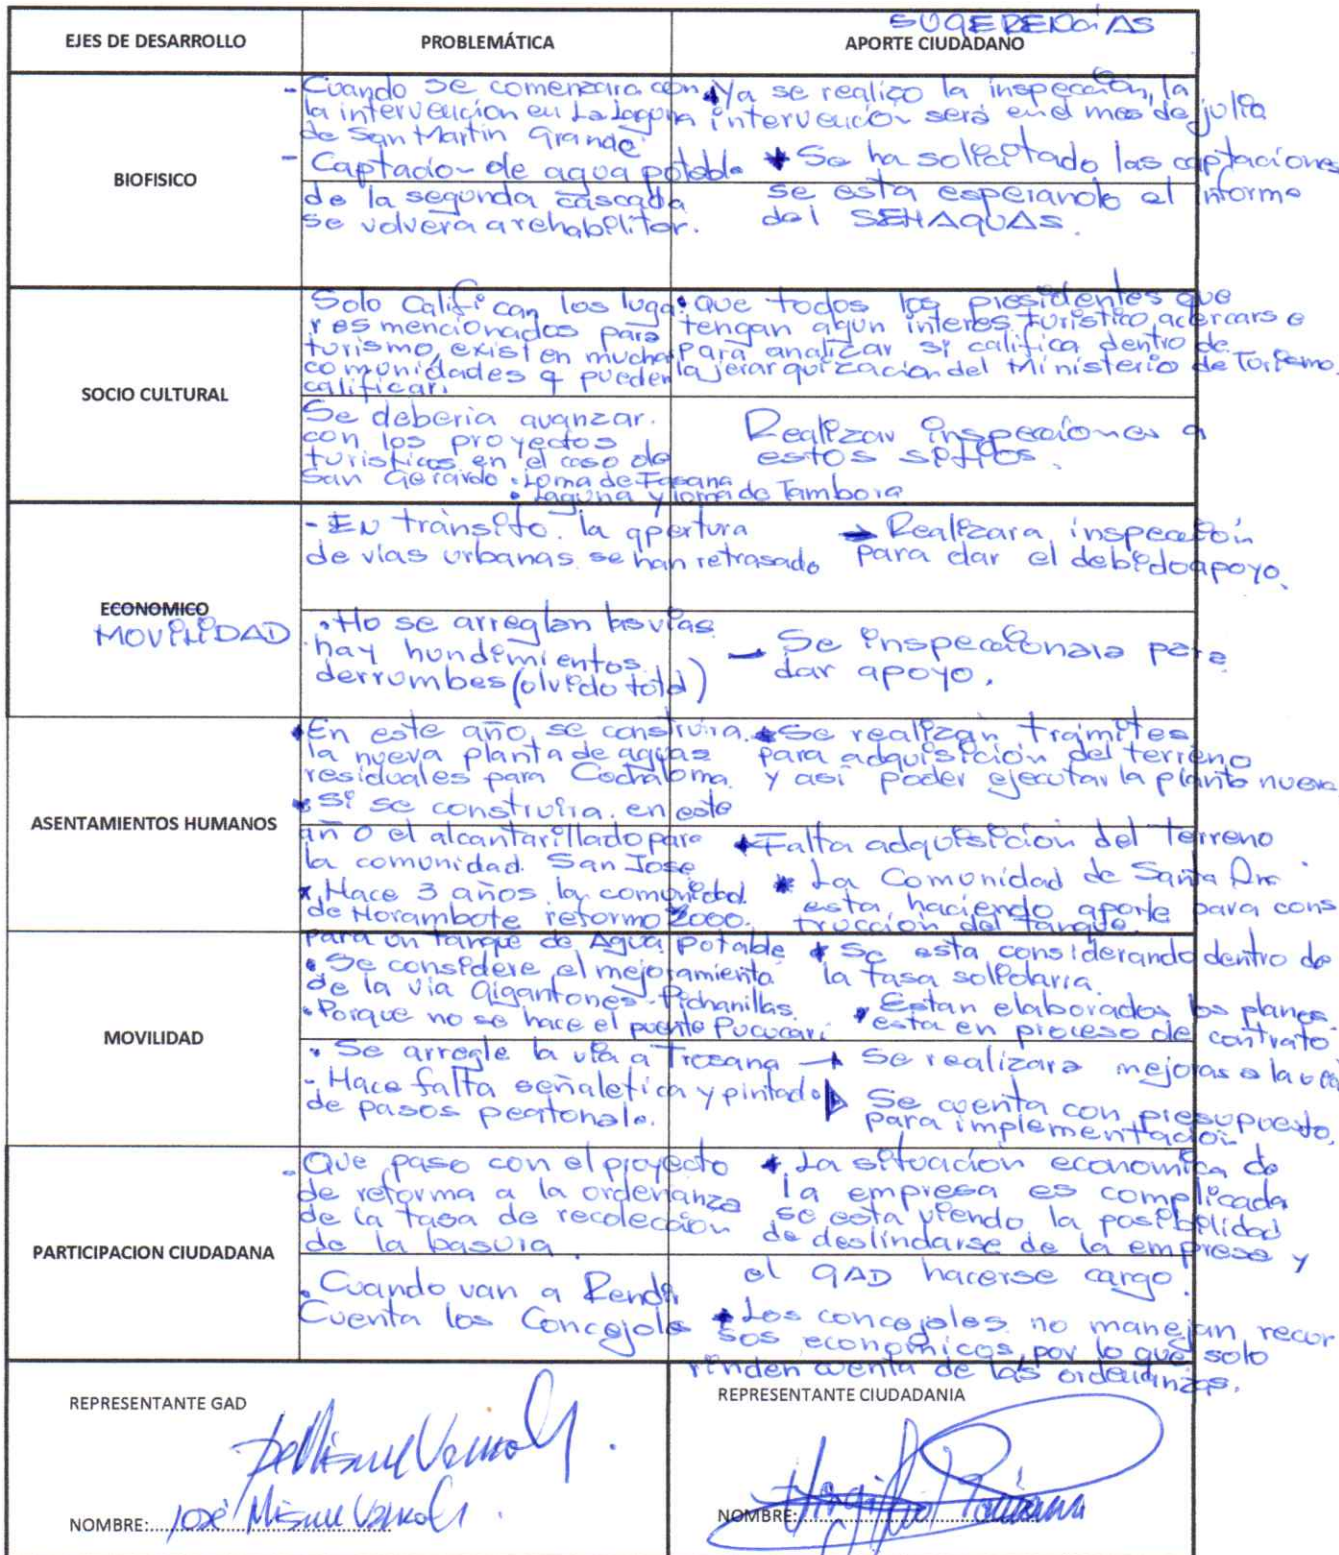 SUGERENCIAS
EJES DE DESARROLLO
PROBLEMÁTICA
APORTE CIUDADANO
BIOFISICO
- Cuando se comenzara con
la intervención en La Laguna
de San Martin Grande.
- Captacion de agua potable
de la segunda cascada
se volvera a rehabilitar.
Ya se realizo la inspección, la
intervención será en el mes de julio
* Se ha solicitado las captaciones
se esta esperando el informe
del SENAGUAS.
SOCIO CULTURAL
Solo Califican los luga
res mencionados para
turismo, existen muchas
comunidades q pueden
calificar.
• que todos los presidentes que
tengan agun interes turistico acercarse
Para analizar si califica dentro de
la jerarquización del Ministerio de Turismo.
Se deberia avanzar.
con los proyectos
turisticos en el caso de
San Gerardo • Loma de Fasana
• Laguna y loma de Tambora
Realizar inspecciones a
estos sitios.
ECONOMICO
MOVILIDAD
- En tránsito. la apertura
de vías urbanas se han retrasado
→ Realizara inspección
para dar el debido apoyo.
• No se arreglan las vías
hay hundimientos
derrumbes (olvido total)
- Se inspeccionara para
dar apoyo.
ASENTAMIENTOS HUMANOS
En este año se construira.
la nueva planta de aguas
residuales para Cochaloma.
• Si se construira. en este
año el alcantarillado para
la comunidad. San Jose
* Hace 3 años la comunidad.
de reformo 2000.
para un tanque de Agua Potable
Se realizan tramites
para adquisición del terreno
y así poder ejecutar la planta nueva
Falta adquisicion del terreno
* La Comunidad de Santa Ana
esta haciendo aporte para cons
trucción del tanque.
MOVILIDAD
• Se considere el mejoramiento
de la via Gigantones-Pichanillas.
• Porque no se hace el puente Pucucari
• Se arregle la vía a Trosana
- Hace falta señaletica y pintado
de pasos peatonale.
Se esta considerando dentro de
la tasa solidaria.
Estan elaborados los planes.
esta en proceso de contrato
Se realizara mejoras a la via
Se cuenta con presupuesto.
para implementacion
PARTICIPACION CIUDADANA
- Que paso con el proyecto
de reforma a la ordenanza
de la tasa de recolección
de la basura.
La situacion economica de
la empresa es complicada
se esta viendo la posibilidad
de deslindarse de la empresa y
el GAD hacerse cargo.
• Cuando van a Rendir
Cuenta los Concejales
Los concejales no manejan recur
sos economicos, por lo que solo
rinden cuenta de las ordenanzas.
REPRESENTANTE GAD
NOMBRE: José Miguel
REPRESENTANTE CIUDADANIA
NOMBRE: